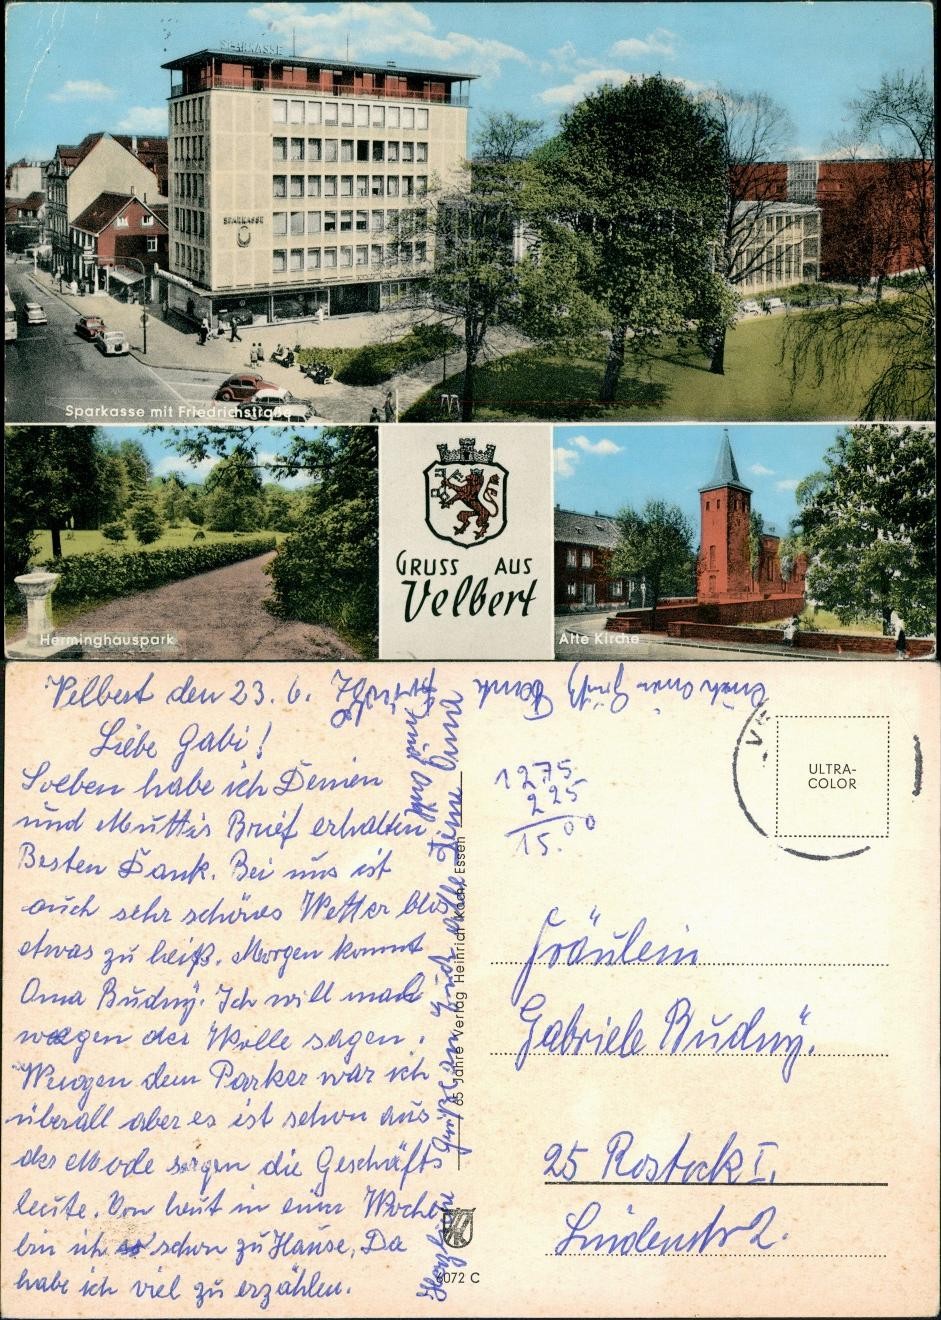 SPARKASSE
SPARKASSE
Sparkasse mit Friedrichstraße
Herminghauspark
GRUSS AUS
Velbert
Alte Kirche
Velbert den 23. 6. 70
Liebe Gabi!
Soeben habe ich Deinen
und Muttis Brief erhalten
Besten Dank. Bei uns ist
auch sehr schönes Wetter blos
etwas zu heiß. Morgen kommt
Oma Budny. Ich will mal
wegen der Wolle sagen.
Wegen dem Parker war ich
überall aber es ist schon aus
der Mode sagen die Geschäfts
leute. Von heut in einer Woche
bin ich schon zu Hause. Da
habe ich viel zu erzählen.
Herzliche Grüße an Euch alle Deine Oma
und
Gruß Onkel
65 Jahre Verlag Heinrich Koch, Essen
6072 C
ULTRA-
COLOR
1275
225
15.00
Fräulein
Gabriele Budny.
25 Rostock I.
Lindenstr 2.